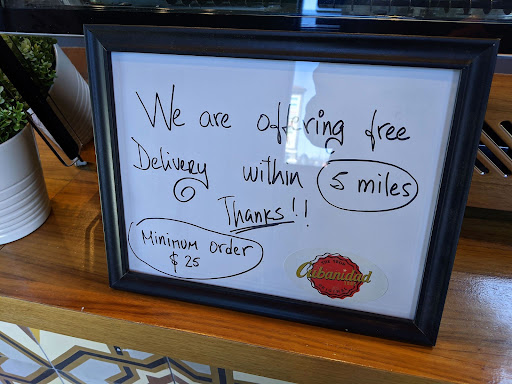 We are offering free
Delivery within 5 miles
Thanks!!
Minimum order
$25
Cubanidad